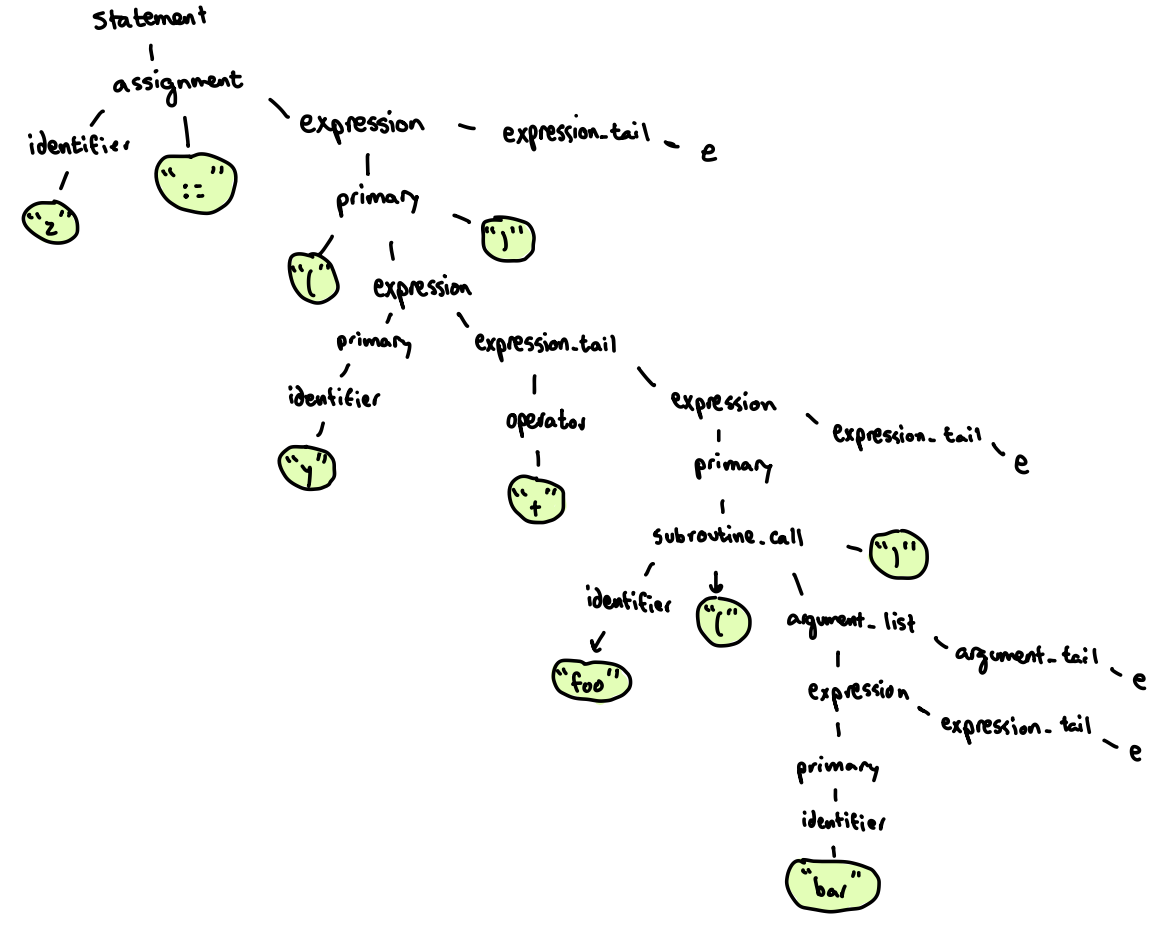 statement
assignment
identifier
":="
expression
expression_tail
e
"z"
primary
"("
")"
expression
primary
expression_tail
identifier
operator
expression
expression_tail
e
"y"
"+"
primary
subroutine_call
")"
identifier
"("
argument_list
argument_tail
e
"foo"
expression
expression_tail
e
primary
identifier
"bar"